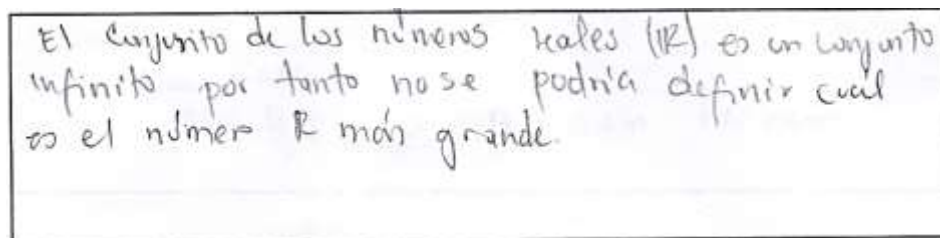 El conjunto de los números reales (IR) es un conjunto
infinito por tanto no se podría definir cuál
es el número R más grande.